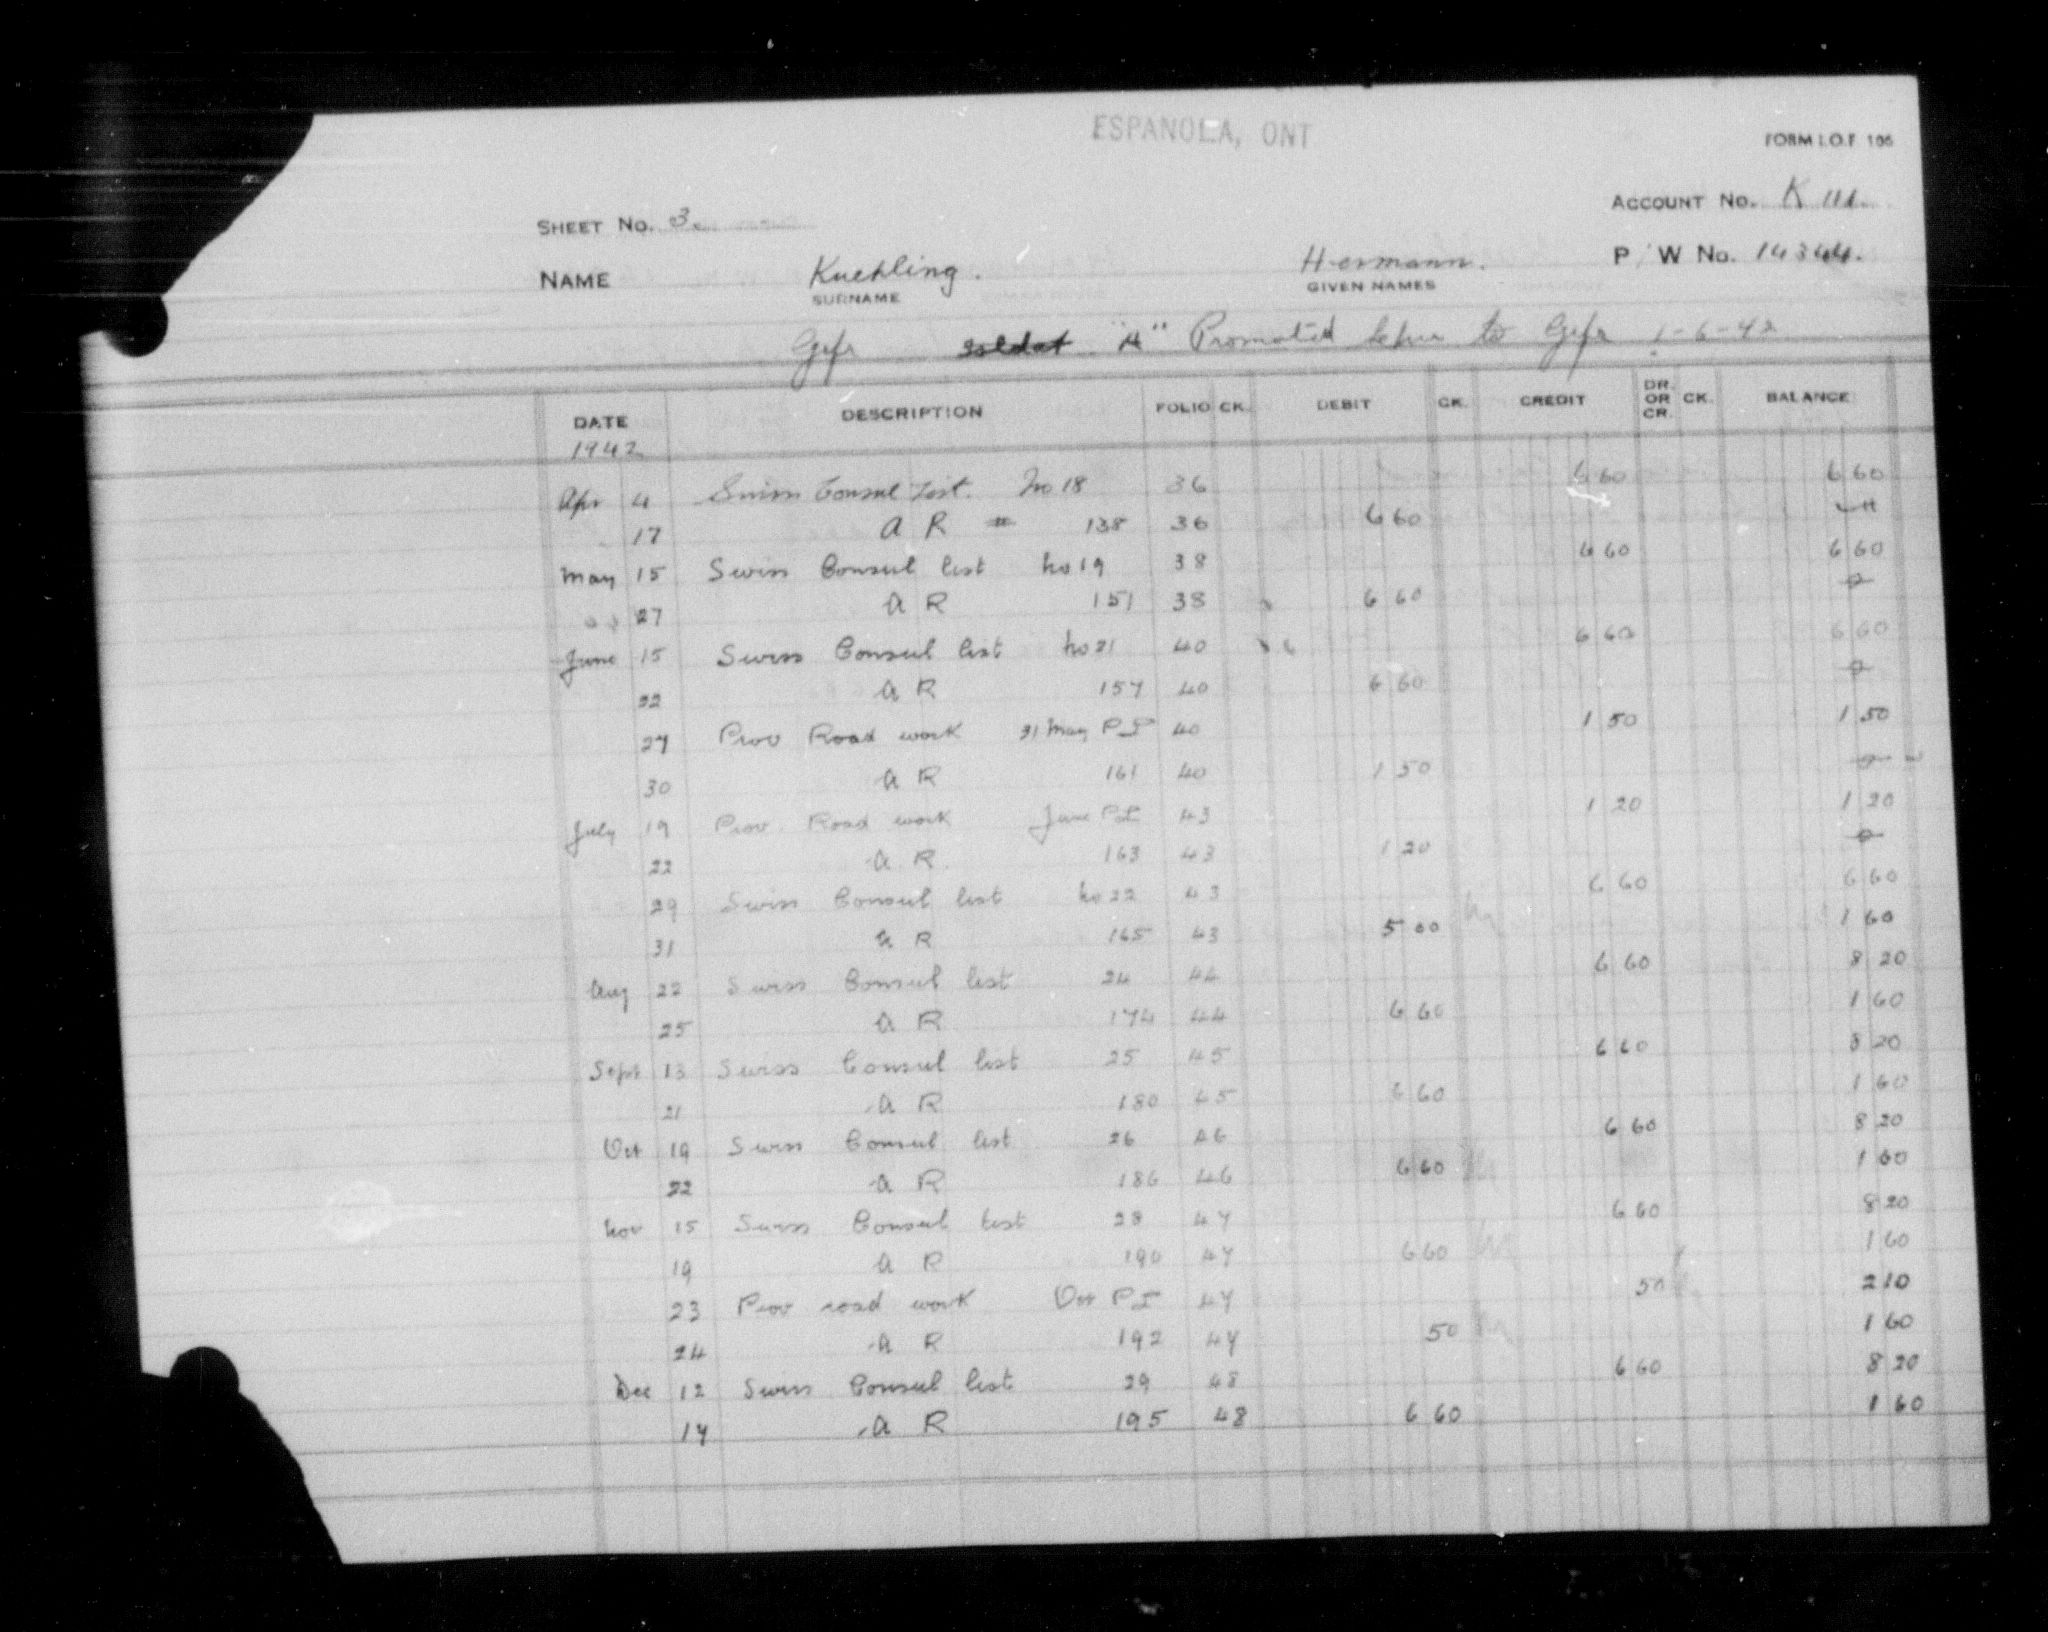 ESPANOLA, ONT
FORM I.O.F 106
SHEET No. 3. ACCOUNT No. K 111.
NAME Kuehling. Hermann. P/W No. 14344.
SURNAME GIVEN NAMES
Gefr soldat "A" Promoted to Gefr 1-6-42
DATE DESCRIPTION FOLIO CK. DEBIT CK. CREDIT DR. OR CR. CK. BALANCE
1942
Apr 4 Swiss Consul List. No 18 36 6 60 6 60
17 A R # 138 36 6 60
May 15 Swiss Consul list No 19 38 6 60 6 60
27 A R 151 38 6 60 0
June 15 Swiss Consul list No 21 40 6 60 6 60
22 A R 157 40 6 60 0
27 Prov Road work 31 May P.I 40 1 50 1 50
30 A R 161 40 1 50 0
July 19 Prov. Road work June P.I 43 1 20 1 20
22 A R. 163 43 1 20 0
29 Swiss Consul list No 22 43 6 60 6 60
31 A R 165 43 5 00 1 60
Aug 22 Swiss Consul list 24 44 6 60 8 20
25 A R 174 44 6 60 1 60
Sept 13 Swiss Consul list 25 45 6 60 8 20
21 A R 180 45 6 60 1 60
Oct 19 Swiss Consul list 26 46 6 60 8 20
22 A R 186 46 6 60 1 60
Nov 15 Swiss Consul list 28 47 6 60 8 20
19 A R 190 47 6 60 1 60
23 Prov road work Oct P.I 47 50 2 10
24 A R 192 47 50 1 60
Dec 12 Swiss Consul list 29 48 6 60 8 20
17 A R 195 48 6 60 1 60